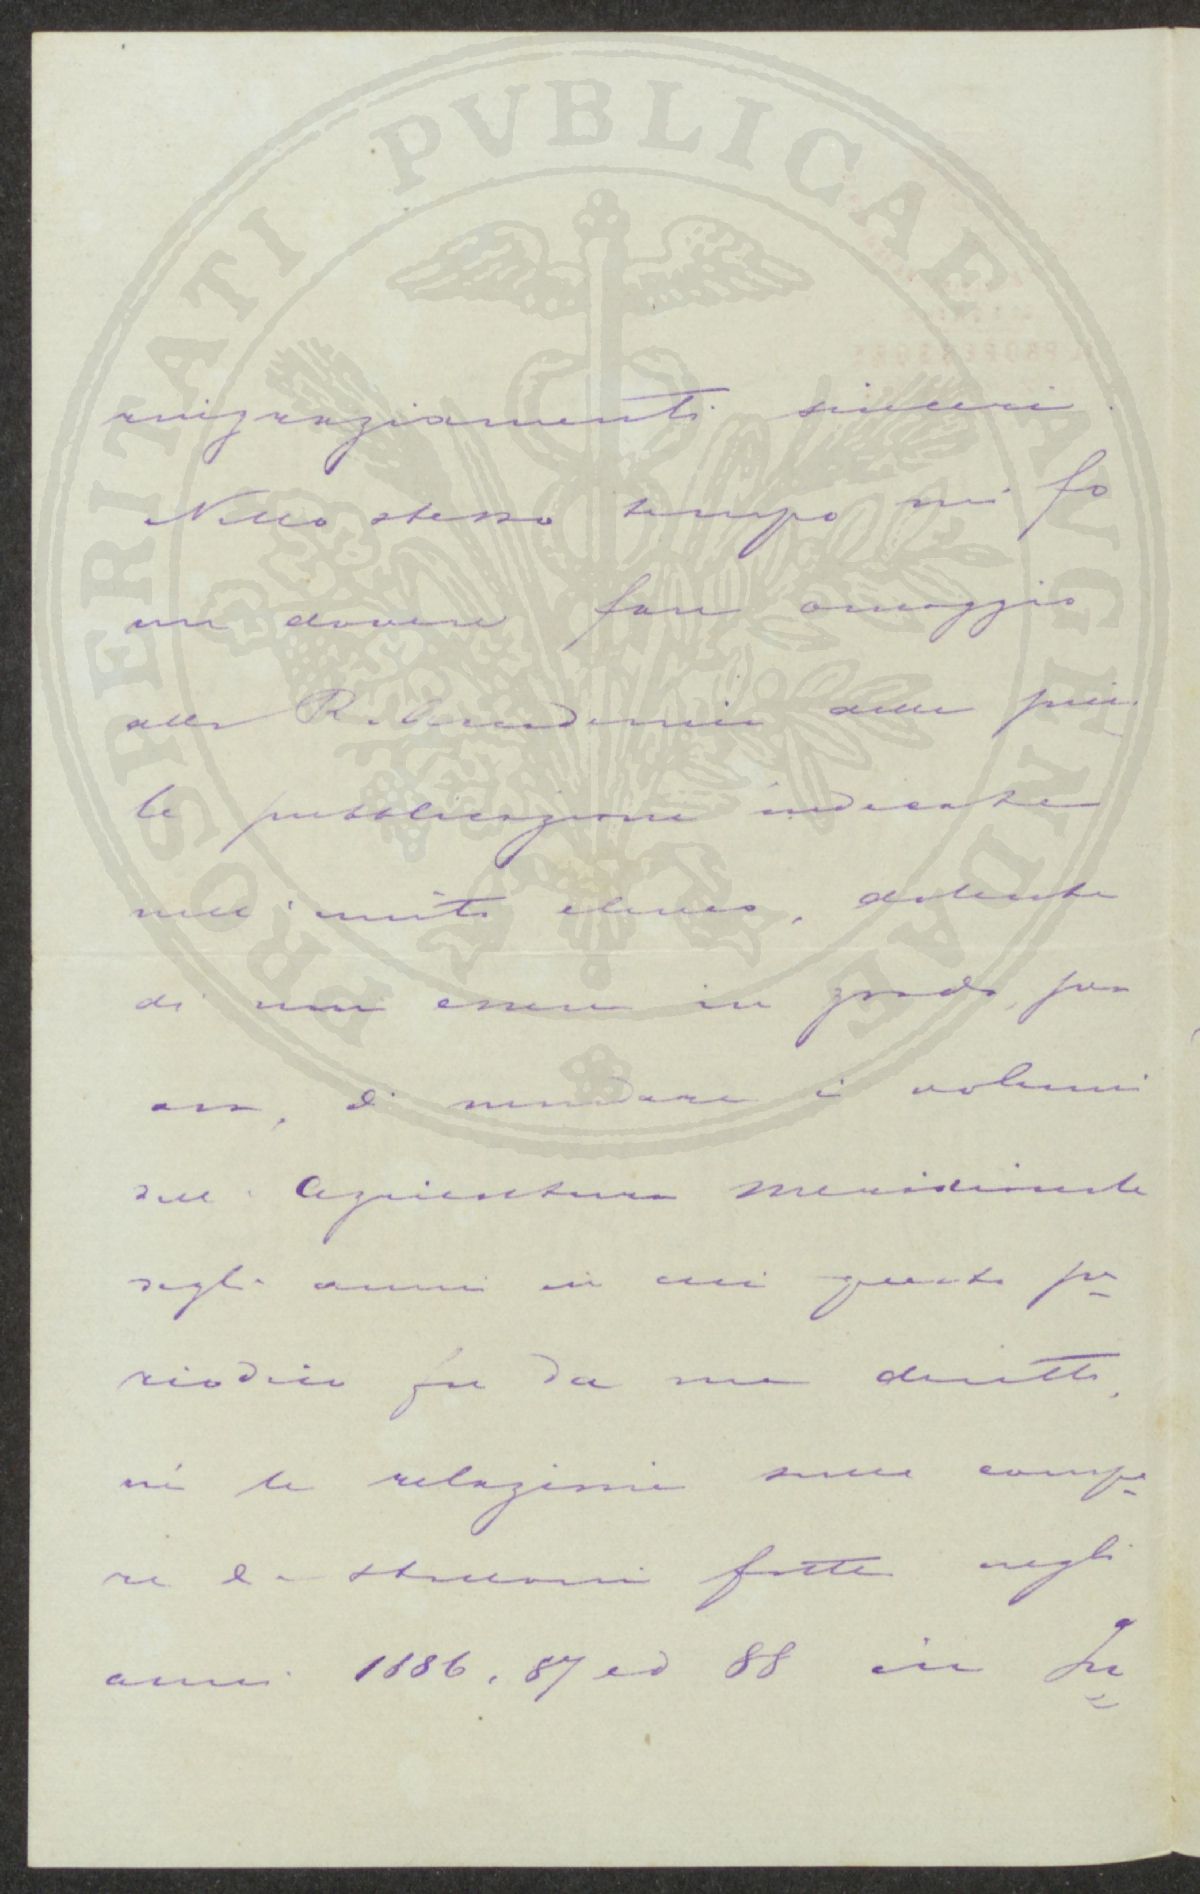 PROSPERITATI PVBLICAE AVGENDAE
ringraziamenti sinceri.
Nello stesso tempo mi fo
un dovere fare omaggio
alla R. Accademia delle
le pubblicazioni indicate
nell'unito elenco, dolente
di non essere in grado, per
ora, di mandare i volumi
dell'Agricoltura Meridionale
degli anni in cui questo pe-
riodico fu da me diretto,
nè le relazioni sulle
fatte negli
anni 1886, 87 ed 88 in